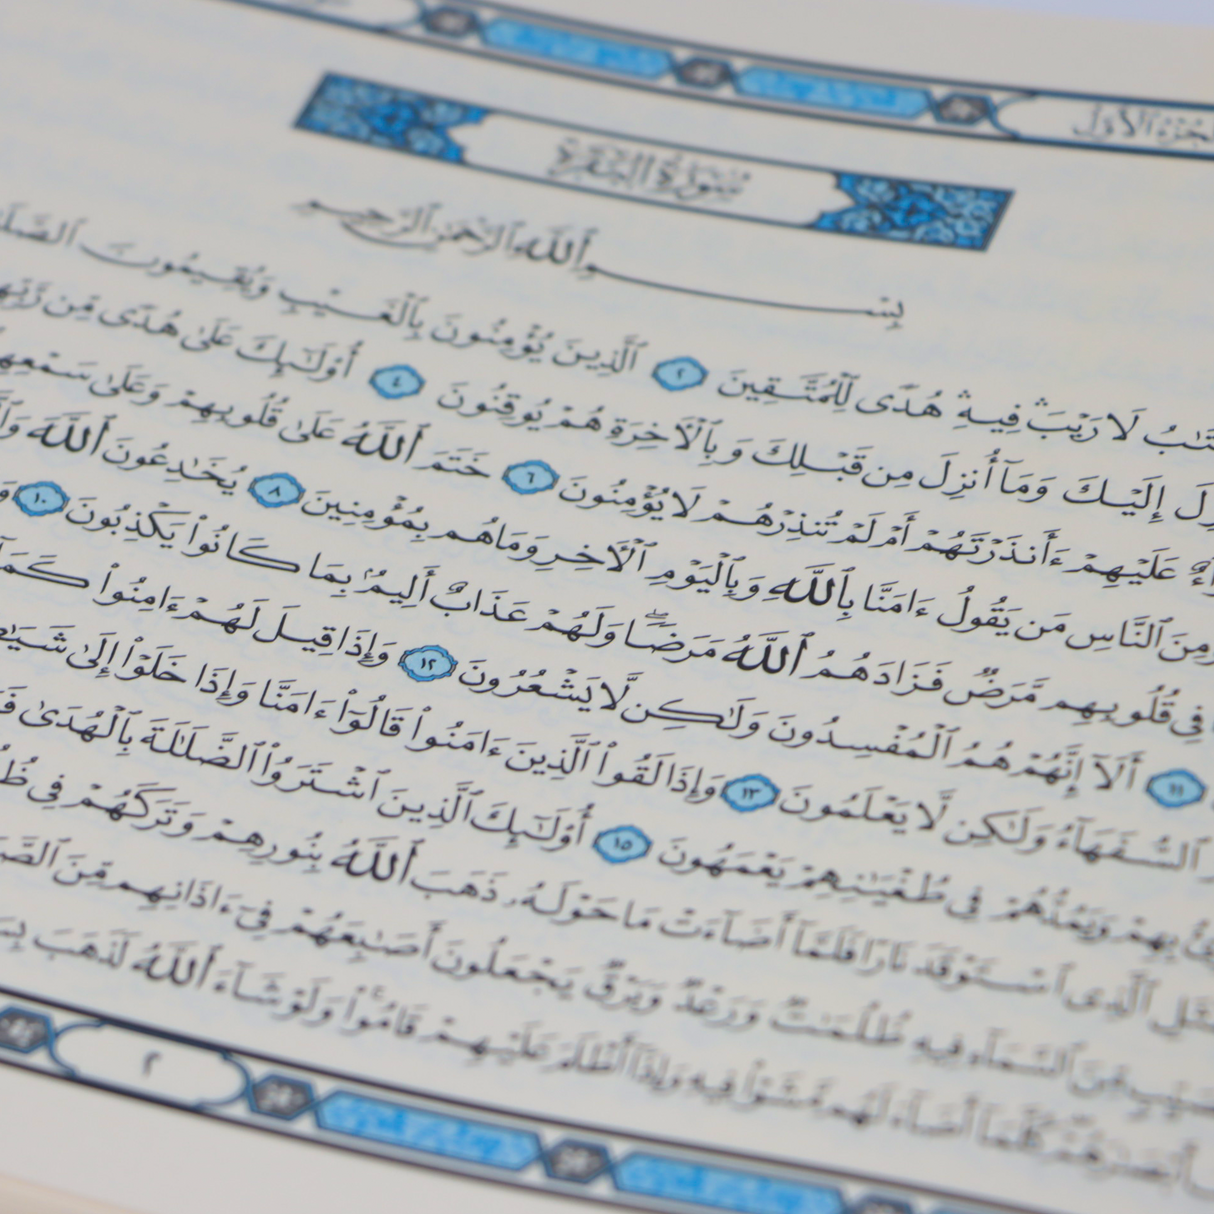 الجزء الأول
سورة البقرة
بِسْمِ ٱللَّهِ ٱلرَّحْمَٰنِ ٱلرَّحِيمِ
لَا رَيْبَ ۛ فِيهِ ۛ هُدًى لِّلْمُتَّقِينَ ٢ ٱلَّذِينَ يُؤْمِنُونَ بِٱلْغَيْبِ وَيُقِيمُونَ
إِلَيْكَ وَمَآ أُنزِلَ مِن قَبْلِكَ وَبِٱلْأَخِرَةِ هُمْ يُوقِنُونَ ٤ أُوْلَٰٓئِكَ عَلَىٰ هُدًى مِّن
عَلَيْهِمْ ءَأَنذَرْتَهُمْ أَمْ لَمْ تُنذِرْهُمْ لَا يُؤْمِنُونَ ٦ خَتَمَ ٱللَّهُ عَلَىٰ قُلُوبِهِمْ وَعَلَىٰ
مِنَ ٱلنَّاسِ مَن يَقُولُ ءَامَنَّا بِٱللَّهِ وَبِٱلْيَوْمِ ٱلْأَخِرِ وَمَا هُم بِمُؤْمِنِينَ ٨ يُخَٰدِعُونَ ٱللَّهَ
فِي قُلُوبِهِم مَّرَضٌ فَزَادَهُمُ ٱللَّهُ مَرَضًا ۖ وَلَهُمْ عَذَابٌ أَلِيمٌۢ بِمَا كَانُوا۟ يَكْذِبُونَ ١٠
١١ أَلَآ إِنَّهُمْ هُمُ ٱلْمُفْسِدُونَ وَلَٰكِن لَّا يَشْعُرُونَ ١٢ وَإِذَا قِيلَ لَهُمْ ءَامِنُوا۟
ٱلسُّفَهَآءُ وَلَٰكِن لَّا يَعْلَمُونَ ١٣ وَإِذَا لَقُوا۟ ٱلَّذِينَ ءَامَنُوا۟ قَالُوٓا۟ ءَامَنَّا وَإِذَا خَلَوْا۟ إِلَىٰ
بِهِمْ وَيَمُدُّهُمْ فِي طُغْيَٰنِهِمْ يَعْمَهُونَ ١٥ أُوْلَٰٓئِكَ ٱلَّذِينَ ٱشْتَرَوُا۟ ٱلضَّلَٰلَةَ بِٱلْهُدَىٰ
ٱلَّذِى ٱسْتَوْقَدَ نَارًا فَلَمَّآ أَضَآءَتْ مَا حَوْلَهُۥ ذَهَبَ ٱللَّهُ بِنُورِهِمْ وَتَرَكَهُمْ فِى
مِّنَ ٱلسَّمَآءِ فِيهِ ظُلُمَٰتٌ وَرَعْدٌ وَبَرْقٌ يَجْعَلُونَ أَصَٰبِعَهُمْ فِىٓ ءَاذَانِهِم مِّنَ
كُلَّمَآ أَضَآءَ لَهُم مَّشَوْا۟ فِيهِ وَإِذَآ أَظْلَمَ عَلَيْهِمْ قَامُوا۟ ۚ وَلَوْ شَآءَ ٱللَّهُ لَذَهَبَ
٢